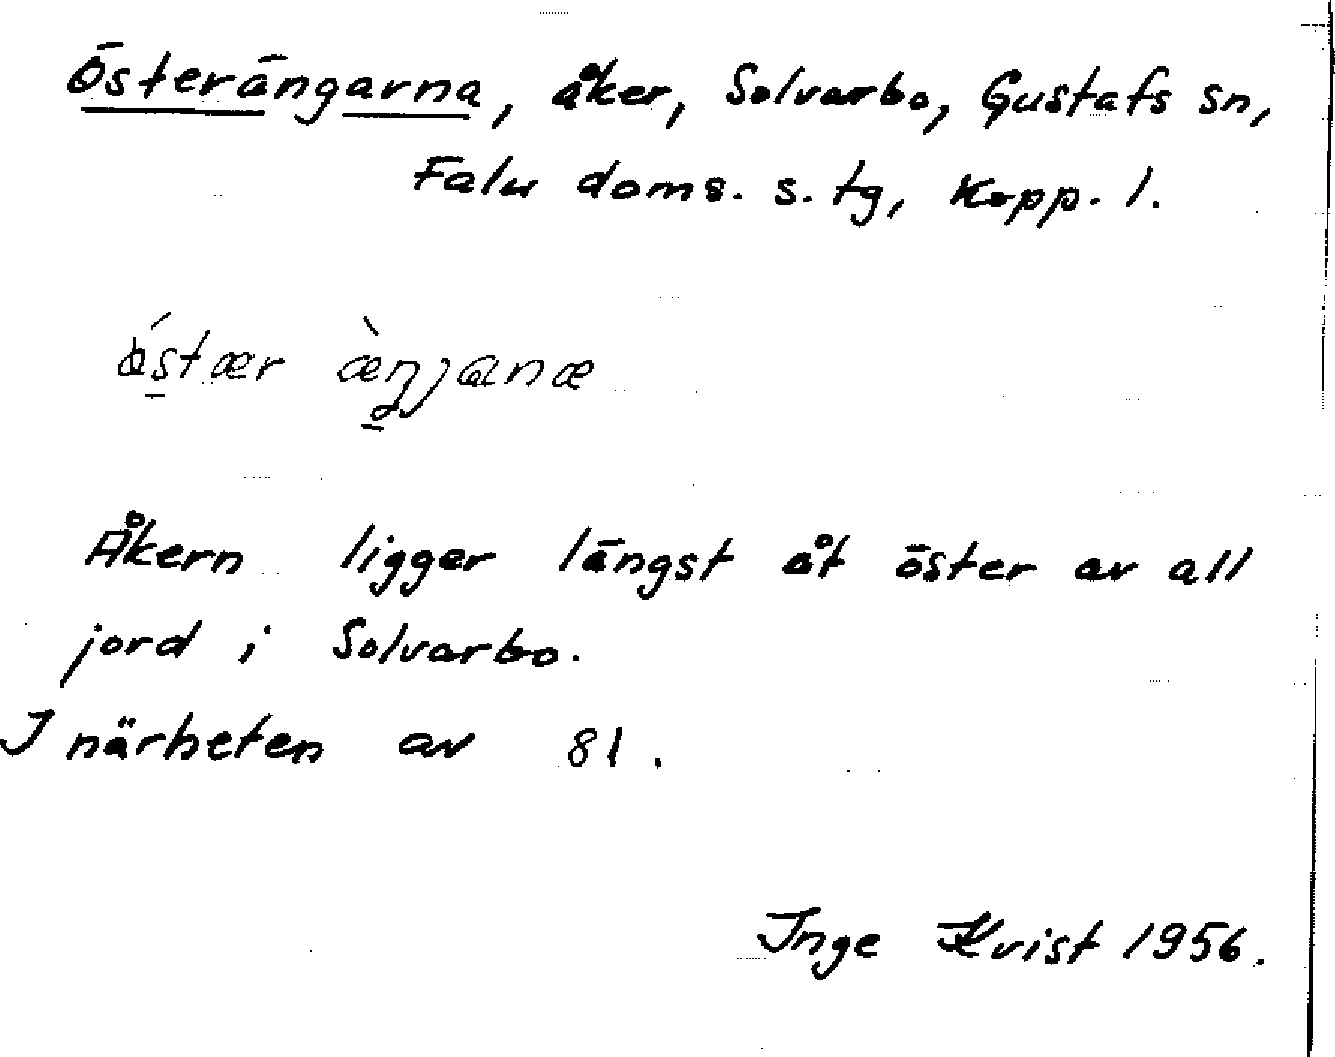 Österängarna, åker, Solvarbo, Gustafs sn,
Falu doms. s. tg, Kopp. l.
Åkern ligger längst åt öster av all
jord i Solvarbo.
I närheten av 81.
Inge Kvist 1956.